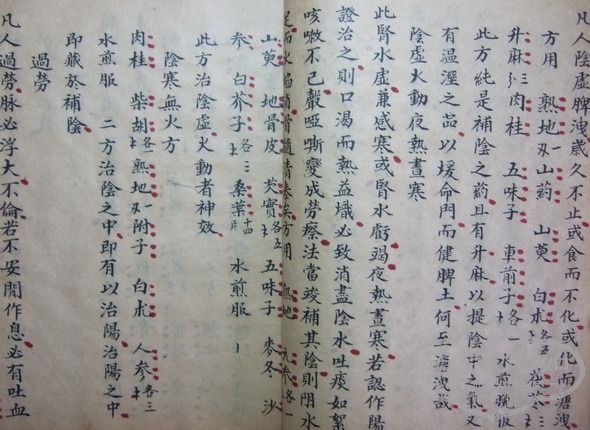 凡人陰虛脾洩歲久不止或食而不化或化而溏洩
方用 熟地 山葯 山萸 白朮各五 茯苓三
升麻三 肉桂 五味子 車前子各一 水煎晚服
此方純是補陰之葯且有升麻以提陰中之氣又
有温溼之品以煖命門而健脾土何至溏洩哉
陰虛火動夜熱晝寒
此腎水虛兼感寒或腎水虧竭夜熱晝寒若認作陽
證治之則口渴而熱益熾必致消盡陰水吐痰如絮
咳嗽不已聲啞嘶變成勞瘵法當峻補其陰則陰水
足而火焰消骨髓清泰矣方用 熟地 元参各一
山萸 地骨皮 芡實各五 五味子 麥冬 沙
参 白芥子各三 桑葉片 水煎服
此方治陰虛火動者神效
陰寒無火方
肉桂 柴胡各一 熟地 附子 白朮 人参各三
水煎服 二方治陰之中即有以治陽治陽之中
即藏於補陰
過勞
凡人過勞脉必浮大不倫若不安閒作息必有吐血